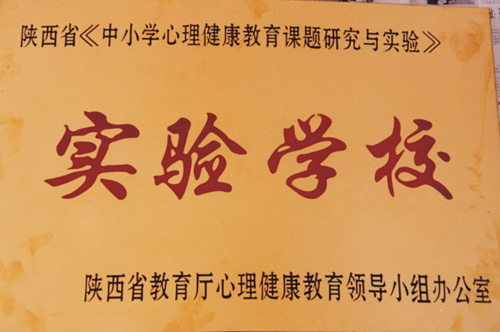 陕西省《中小学心理健康教育课题研究与实验》
实验学校
陕西省教育厅心理健康教育领导小组办公室